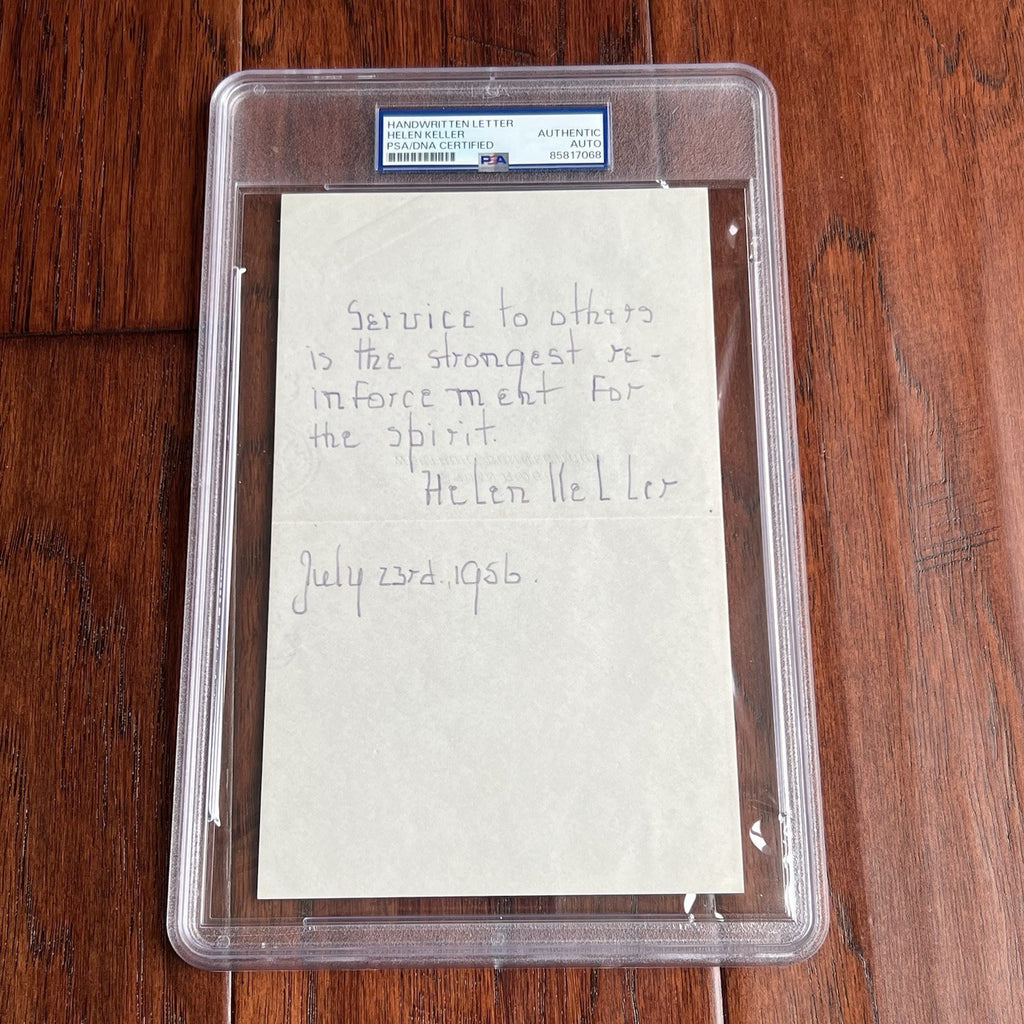 HANDWRITTEN LETTER
HELEN KELLER
PSA/DNA CERTIFIED
AUTHENTIC
AUTO
85817068
PSA
Service to others
is the strongest re-
inforcement for
the spirit.
Helen Keller
July 23rd., 1956.